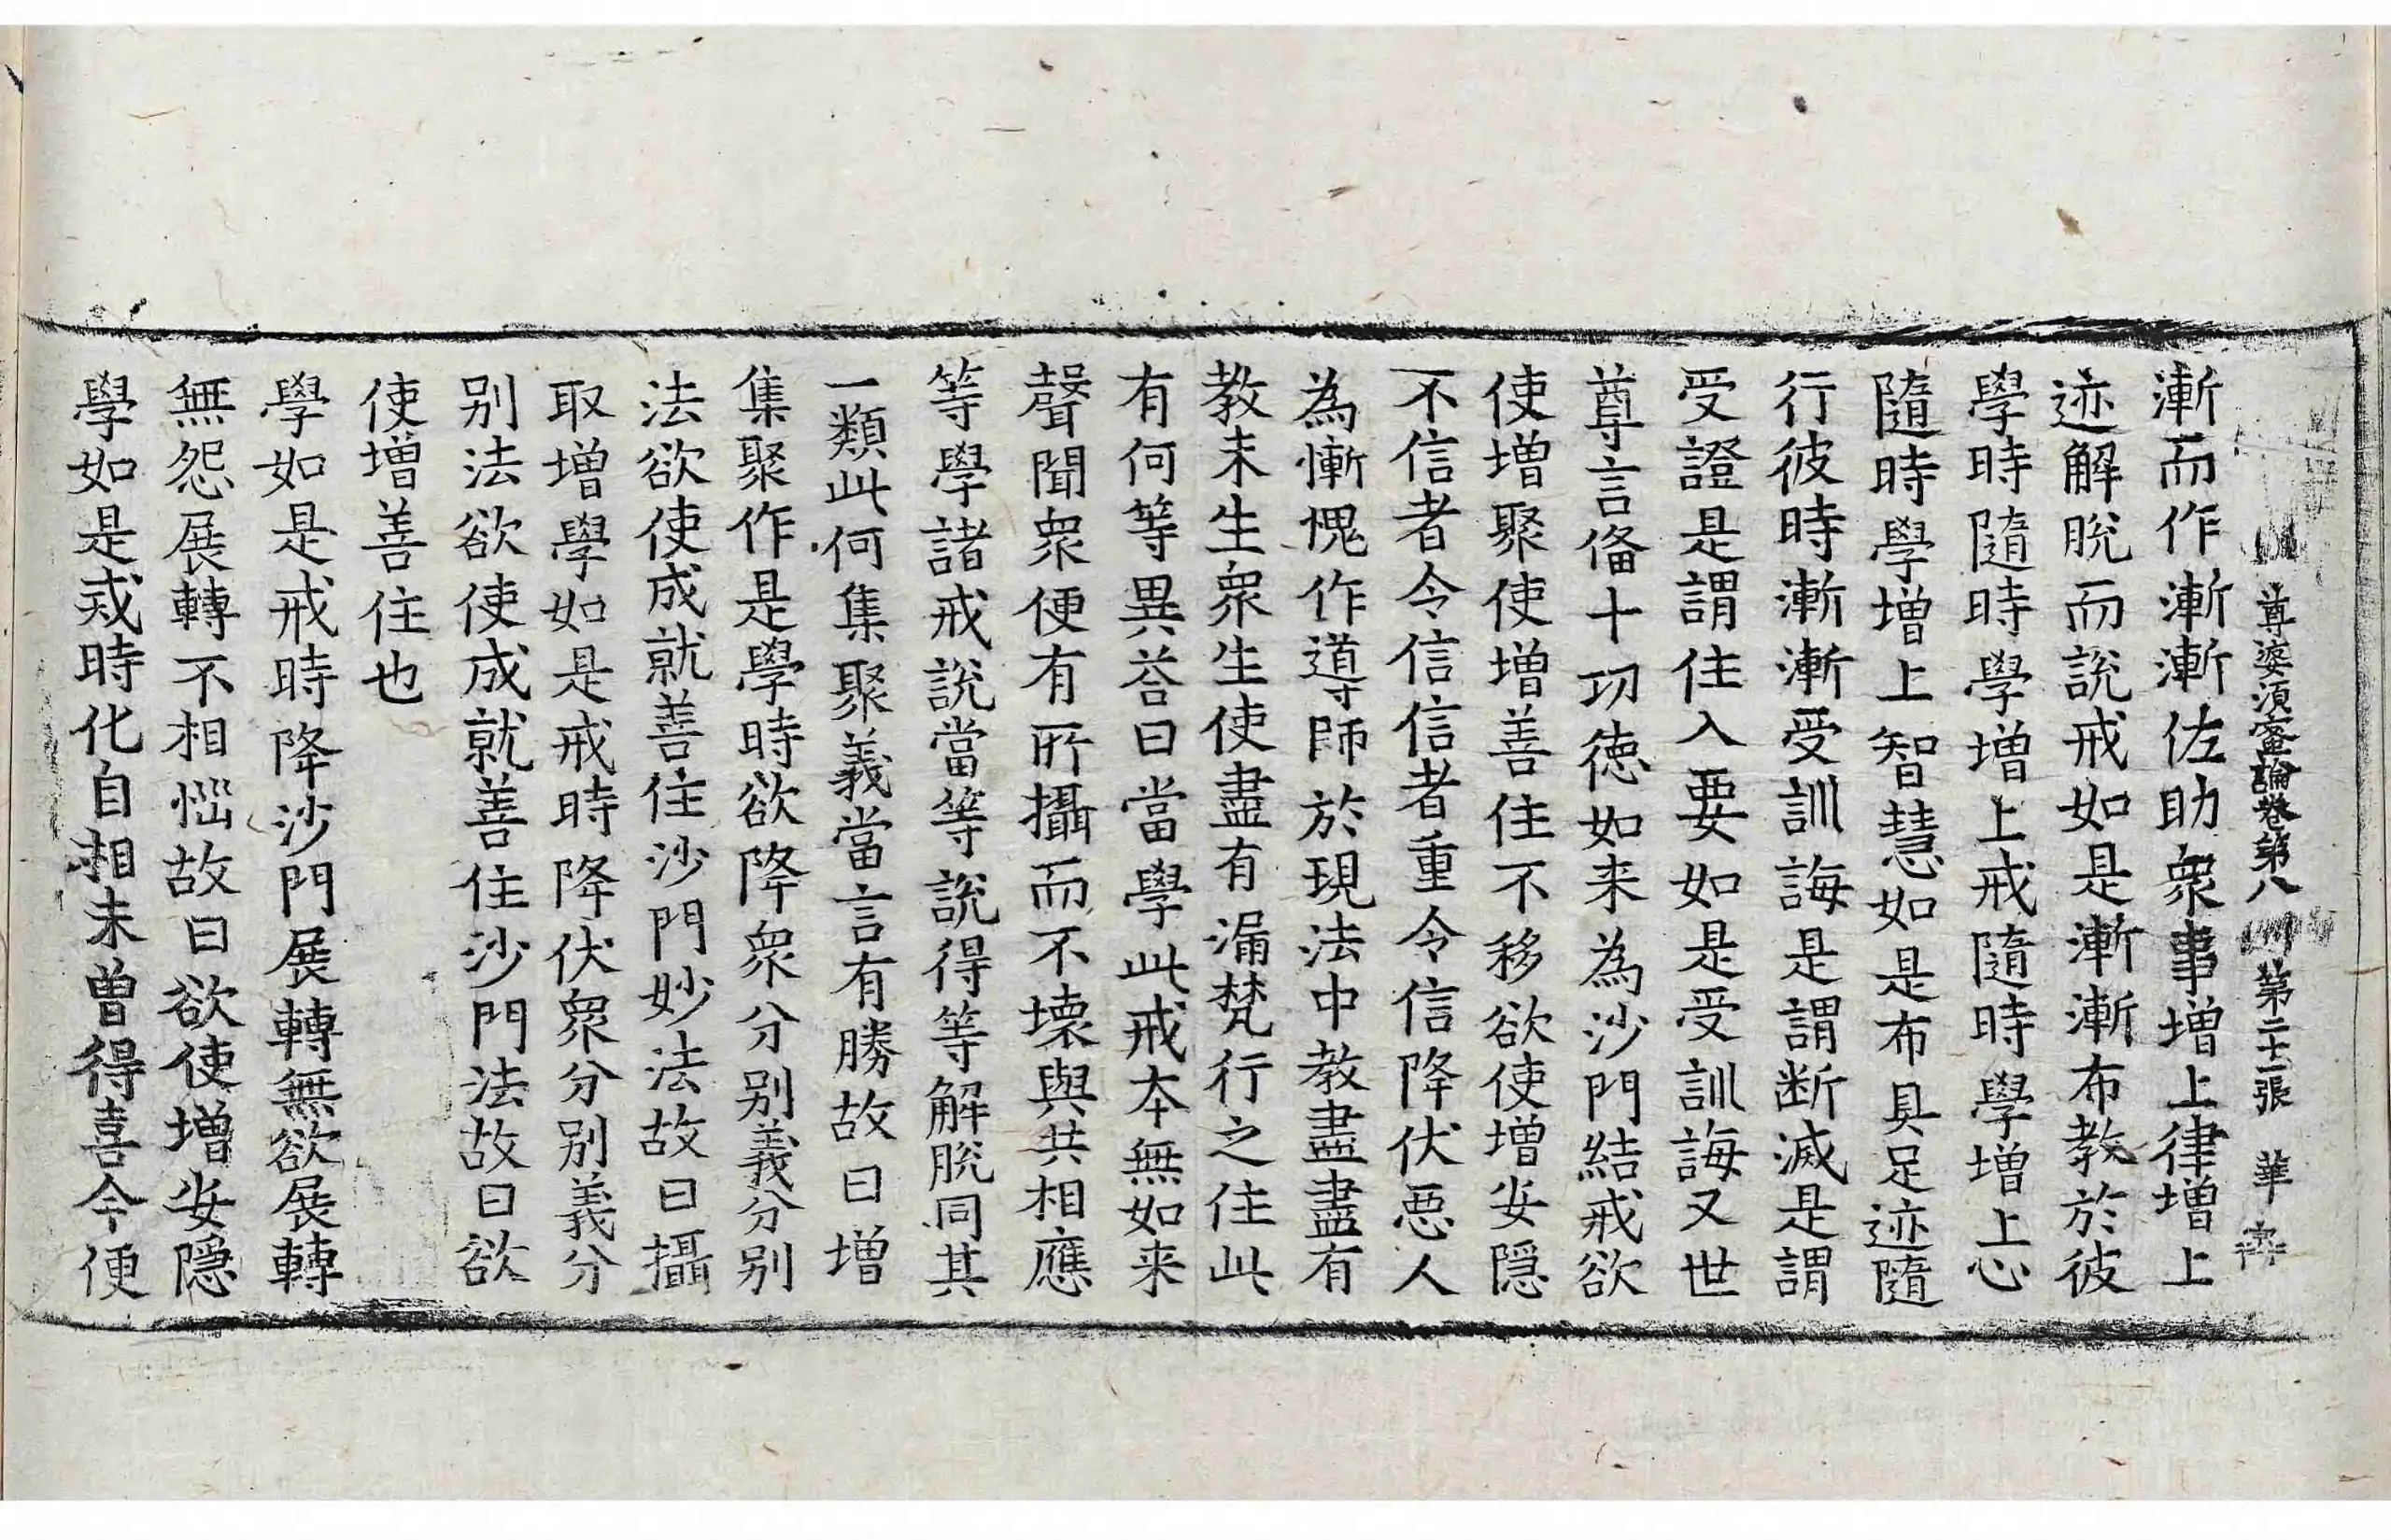 尊婆須蜜論卷第八 第二十一張 華
漸而作漸漸佐助衆事增上律增上
迹解脫而說戒如是漸漸布教於彼
學時隨時學增上戒隨時學增上心
隨時學增上智慧如是布具足迹隨
行彼時漸漸受訓誨是謂断滅是謂
受證是謂住入要如是受訓誨又世
尊言俻十功徳如来為沙門結戒欲
使增聚使增善住不移欲使增安隠
不信者令信信者重令信降伏悪人
為慚愧作導師於現法中教盡盡有
教未生衆生使盡有漏梵行之住此
有何等異荅曰當學此戒夲無如来
聲聞衆便有所攝而不壊與共相應
等學諸戒說當等說得等解脫同其
一類此何集聚義當言有勝故曰增
集聚作是學時欲降衆分别義分别
法欲使成就善住沙門妙法故曰攝
取增學如是戒時降伏衆分别義分
别法欲使成就善住沙門法故曰欲
使增善住也
學如是戒時降沙門展轉無欲展轉
無怨展轉不相惱故曰欲使增安隠
學如是戒時化自相未曽得喜令便